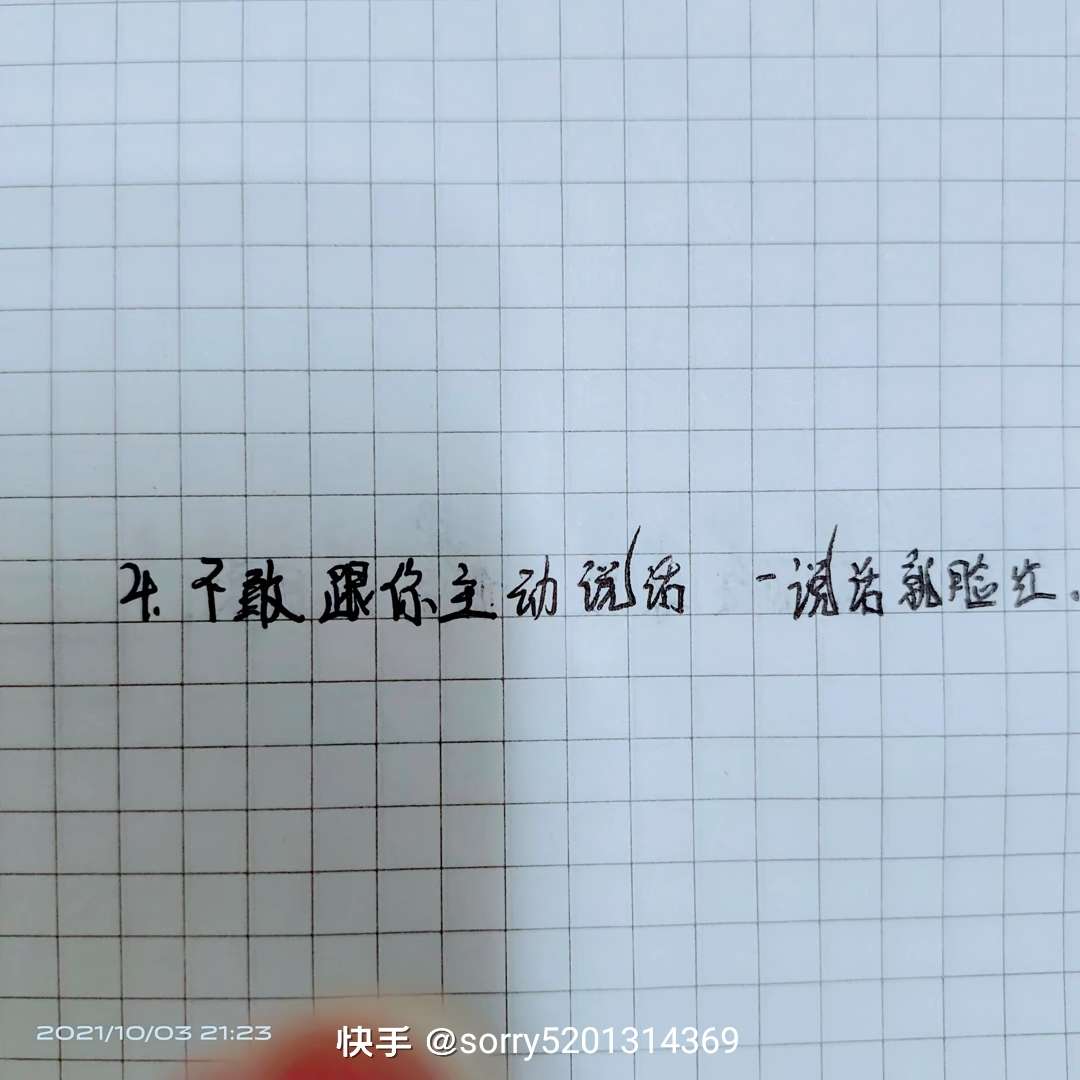 4.不敢跟你主动说话 一说话就脸红.
2021/10/03 21:23
快手 @sorry5201314369